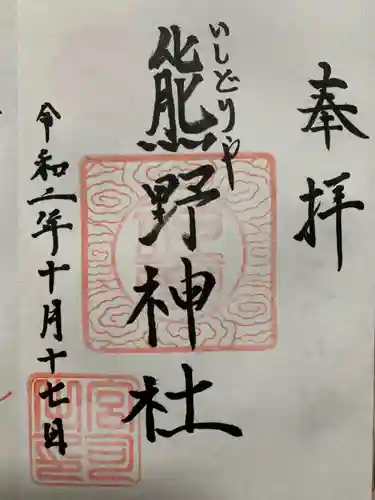 奉拝
いしどりや
熊野神社
令和二年十月十七日